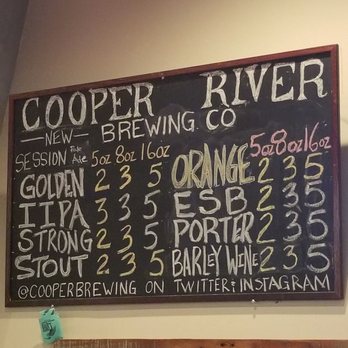 COOPER RIVER
NEW BREWING CO
SESSION Pale Ale 5oz 8oz 16oz
GOLDEN 2 3 5
IIPA 3 3 5
STRONG 2 3 5
STOUT 2 3 5
5oz 8oz 16oz
ORANGE 2 3 5
ESB 2 3 5
PORTER 2 3 5
BARLEY WINE 2 3 5
@COOPERBREWING ON TWITTER & INSTAGRAM